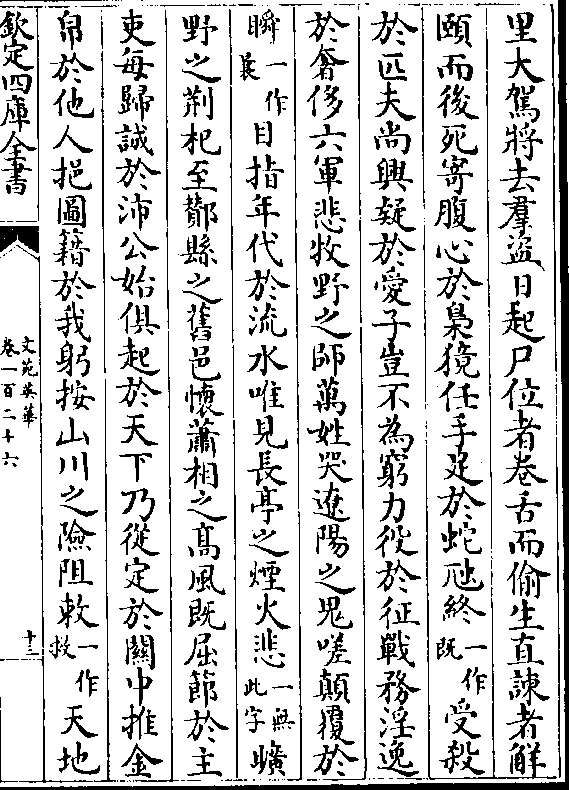 里大駕將去羣盜日起尸位者卷舌而偷生直諫者解
頤而後死寄腹心於梟獍任手足於蛇虺終一作既受殺
於匹夫尚興疑於愛子豈不為窮力役於征戰務淫逸
於奢侈六軍悲牧野之師萬姓哭遼陽之鬼嗟顛覆於
瞬一作曩目指年代於流水唯見長亭之煙火悲一無此字曠
野之荆杞至酇縣之舊邑懷蕭相之髙風既屈節於主
吏每歸誠於沛公始俱起於天下乃從定於關中推金
帛於他人挹圖籍於我躬按山川之險阻敕一作救天地
欽定四庫全書
文苑英華
卷一百二十六
十三